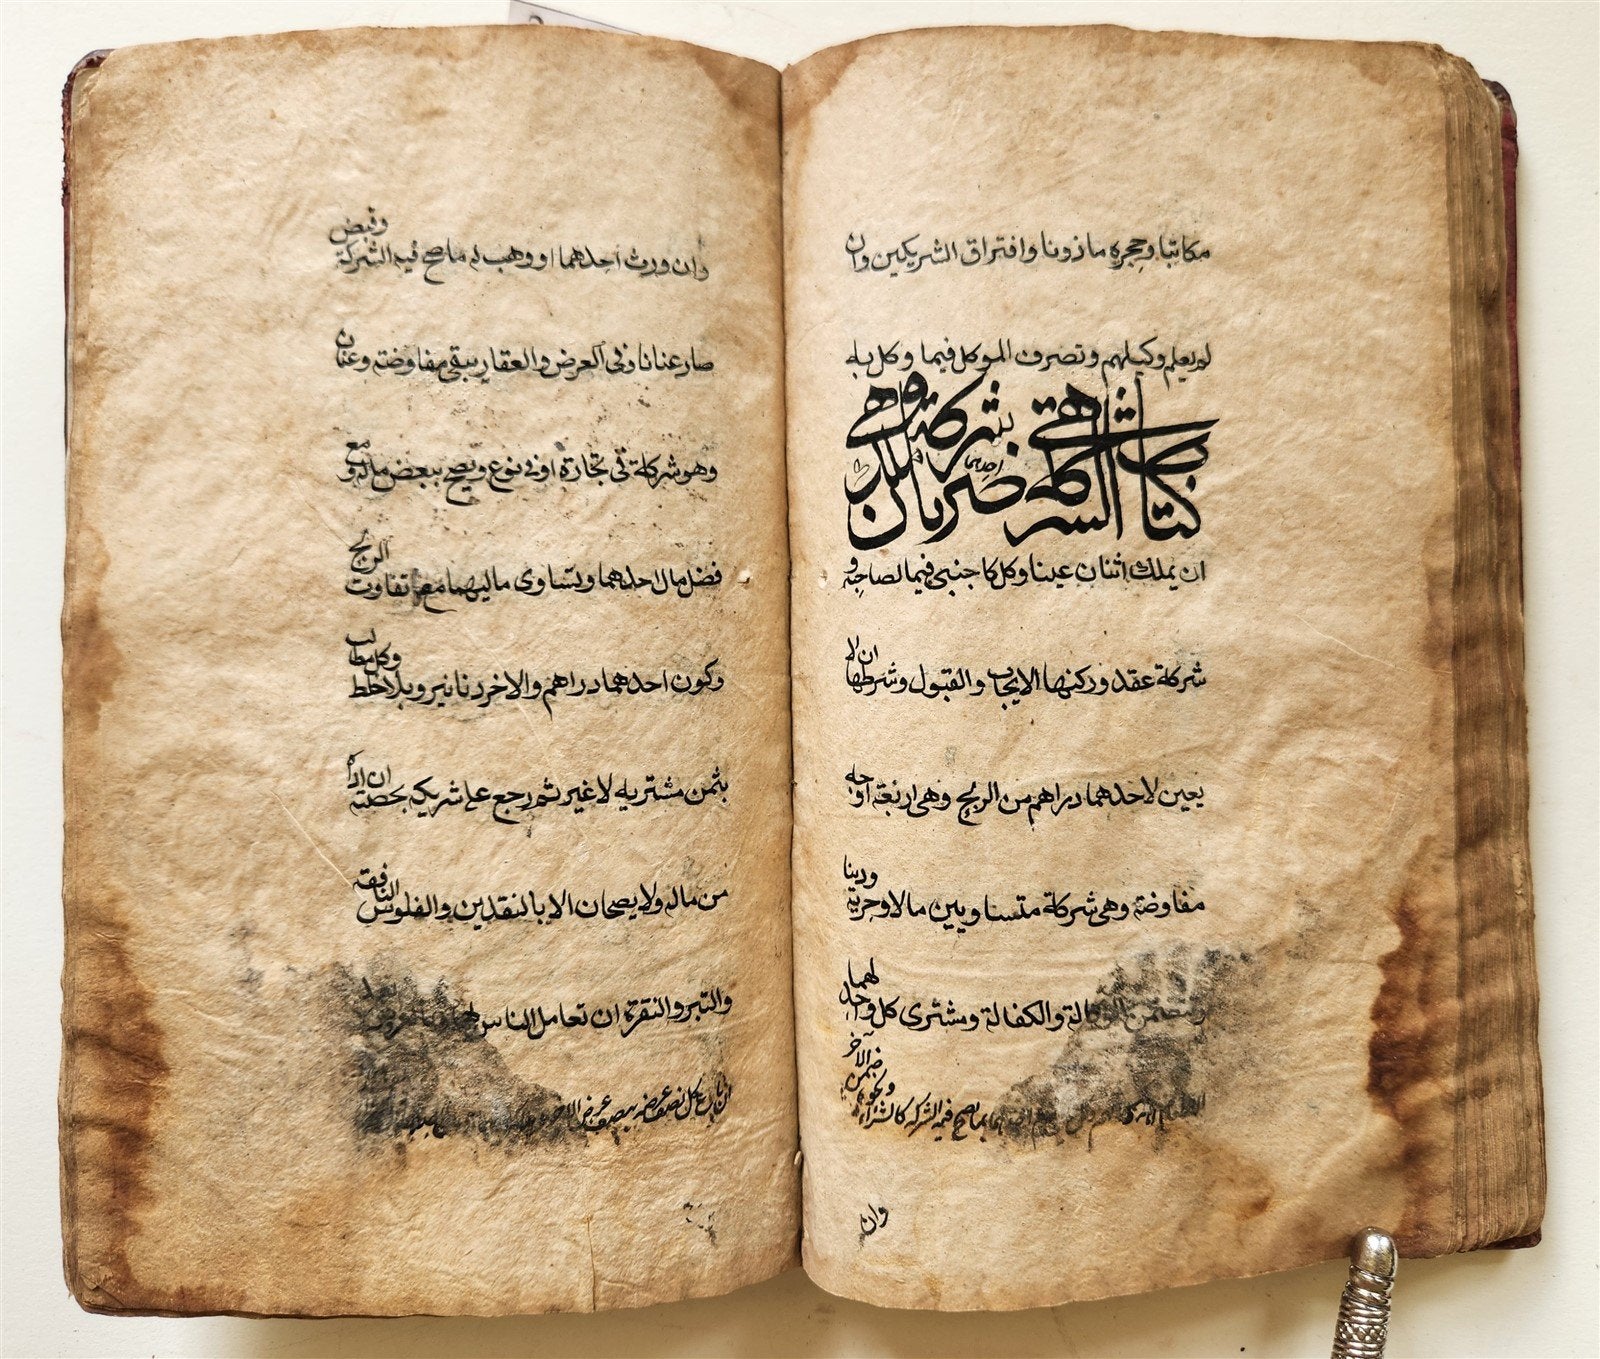 مكاتبا وحجره ماذونا وافتراق الشريكين وان
لم يعلم وكيلهم وتصرف الموكل فيما وكل به
كتاب الشركة هي ضربان شركة
احدهما
ان يملك اثنان عينا وكل كاجنبي فيما لصاحبه و
شركة عقد وركنها الايجاب والقبول وشرطها ان لا
يعين لاحدهما دراهم من الربح وهي اربعة اوجه
مفاوضة وهي شركة متساويين مالا وحرية ودينا
وتتضمن الوكالة والكفالة ومشترى كل واحد لهما
بما يصح فيه الشركة كالشراء ونحوه ضمن الآخر
وان
وان ورث احدهما او وهب له ما صح فيه الشركة وقبض
صار عنانا وفي العرض والعقار يبقى مفاوضة وعنان
وهو شركة في تجارة او في نوع ويصح ببعض ماله ومع
فضل مال احدهما وتساوى ماليهما مع تفاوت الربح
وكون احدهما دراهم والاخر دنانير وبلا خلط وكل مطالب
بثمن مشتريه لا غير ثم رجع على شريكه بحصته ان اداه
من ماله ولا يصحان الا بالنقدين والفلوس النافقة
والتبر والنقرة ان تعامل الناس بهما
ان باع كل نصف عرضه بنصف عرض الاخر